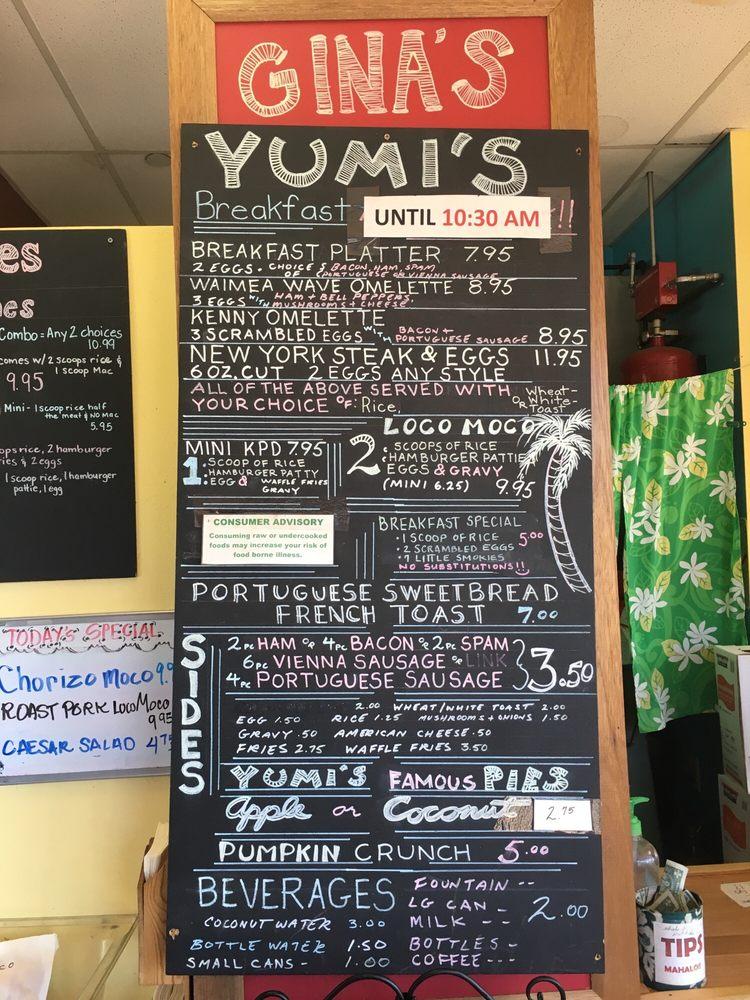 GINA'S
YUMI'S
Breakfast
UNTIL 10:30 AM !!
BREAKFAST PLATTER 7.95
2 EGGS • CHOICE OF BACON, HAM, SPAM,
PORTUGUESE OR VIENNA SAUSAGE
WAIMEA WAVE OMELETTE 8.95
3 EGGS WITH HAM + BELL PEPPERS,
MUSHROOMS + CHEESE
KENNY OMELETTE
3 SCRAMBLED EGGS WITH BACON +
PORTUGUESE SAUSAGE 8.95
NEW YORK STEAK & EGGS 11.95
6 OZ. CUT 2 EGGS ANY STYLE
ALL OF THE ABOVE SERVED WITH
YOUR CHOICE OF: Rice,
OR Wheat-
White-
Toast
MINI KPD 7.95
1 • SCOOP OF RICE
• HAMBURGER PATTY
• EGG & WAFFLE FRIES
GRAVY
LOCO MOCO
2 • SCOOPS OF RICE
• HAMBURGER PATTIE
• EGGS & GRAVY
(MINI 6.25) 9.95
CONSUMER ADVISORY
Consuming raw or undercooked
foods may increase your risk of
food borne illness.
BREAKFAST SPECIAL
• 1 SCOOP OF RICE 5.00
• 2 SCRAMBLED EGGS
• 7 LITTLE SMOKIES
NO SUBSTITUTIONS!!
PORTUGUESE SWEETBREAD
FRENCH TOAST 7.00
SIDES
2pc HAM or 4pc BACON or 2pc SPAM
6pc VIENNA SAUSAGE or LINK
4pc PORTUGUESE SAUSAGE
3.50
2.00 WHEAT/WHITE TOAST 2.00
EGG 1.50 RICE 1.25 MUSHROOMS + ONIONS 1.50
GRAVY .50 AMERICAN CHEESE .50
FRIES 2.75 WAFFLE FRIES 3.50
YUMI'S FAMOUS PIES
Apple or Coconut 2.75
PUMPKIN CRUNCH 5.00
BEVERAGES
COCONUT WATER 3.00
BOTTLE WATER 1.50
SMALL CANS - 1.00
FOUNTAIN --
LG CAN -
MILK ---
BOTTLES -
COFFEE ---
2.00
es
es
Combo = Any 2 choices
10.99
comes w/ 2 scoops rice &
1 scoop Mac
9.95
Mini - 1 scoop rice half
the meat & NO MAC
5.95
ops rice, 2 hamburger
ies & 2 eggs
1 scoop rice, 1 hamburger
pattie, 1 egg
TODAY'S SPECIAL
Chorizo Moco 9.9
ROAST PORK LOCO MOCO
9.95
CAESAR SALAD 4.75
TIPS
MAHALO